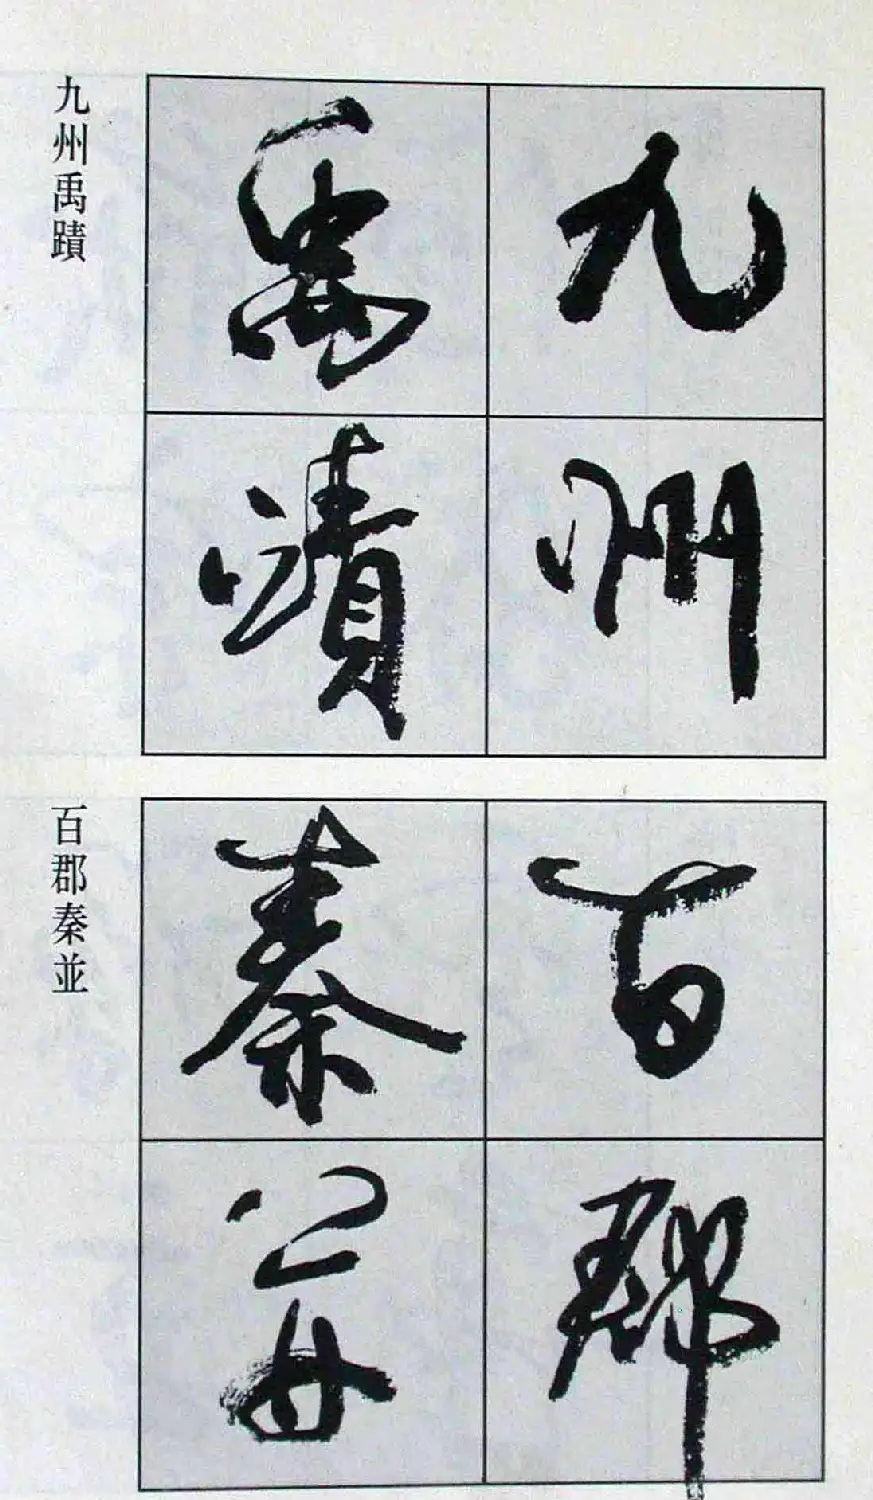 九州
禹蹟
九州禹蹟
百郡
秦并
百郡秦並